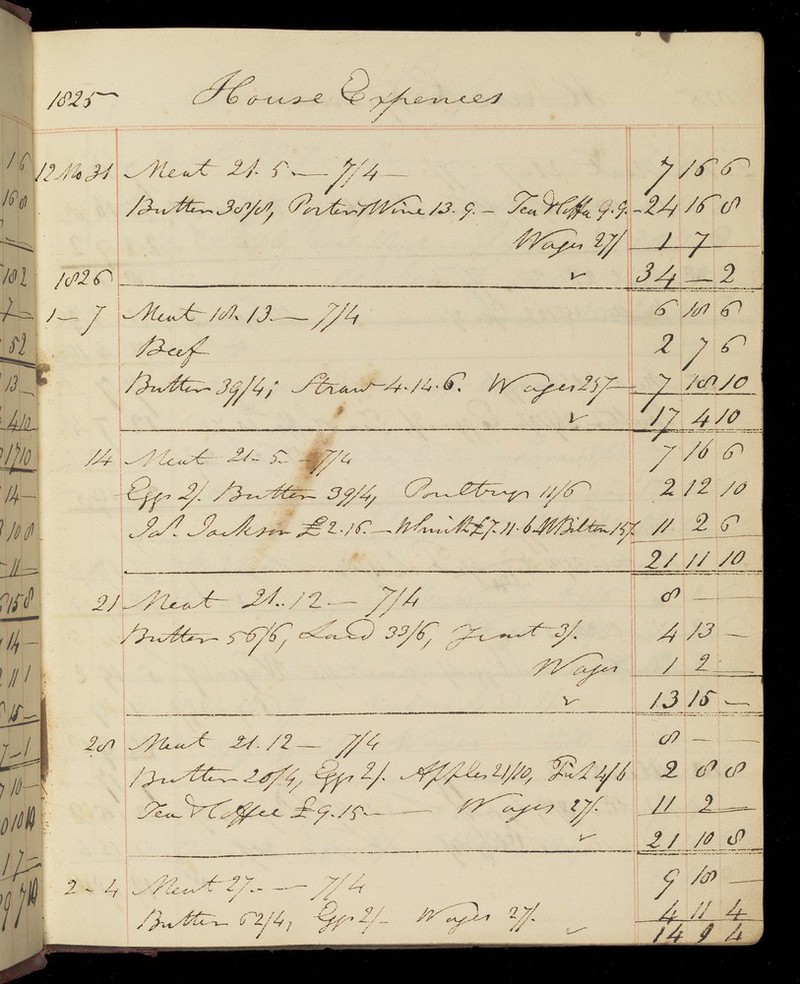 1825 House Expences
12 Mo 31 Meat 21. 5 — 7/4 — 7 16 6
Butter 38/8, Porter & Wine 13. 9. – Tea & Coffee 9. 9. – 24 16 8
Wages 27/ 1 7 —
34 — 2
1826
1 – 7 Meat 18. 13. — 7/4 6 18 6
Beef 2 7 6
Butter 39/4; Straw 4. 14. 6. Wages 25/– 7 18 10
17 4 10
14 Meat 21 – 5 – 7/4 7 16 6
Eggs 2/. Butter 39/4, Poultry 11/6 2 12 10
Jas. Jackson £2. 16. — £7. 11. 6 Bilton 15/. 11 2 6
21 11 10
21 Meat 21.. 12 — 7/4 8 — —
Butter 56/6, Lard 33/6, Yeast 3/. 4 13 —
Wages 1 2 —
13 15 —
28 Meat 21. 12 — 7/4 8 — —
Butter 20/4, Eggs 2/. Apples 21/10, 4/6 2 8 8
Tea & Coffee £9. 15. — Wages 27/. 11 2 —
21 10 8
2 – 4 Meat 27.. — 7/4 9 18 —
Butter 62/4, Eggs 2/– Wages 27/. 4 11 4
14 9 4